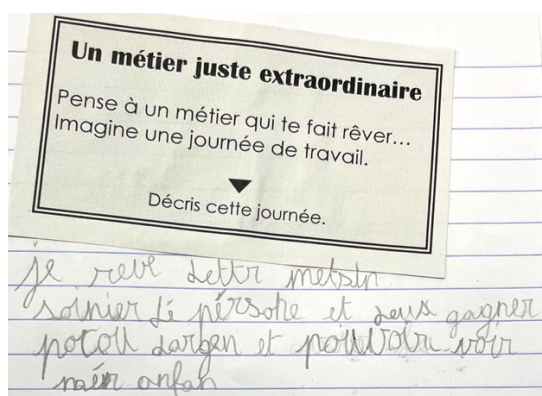 Un métier juste extraordinaire
Pense à un métier qui te fait rêver...
Imagine une journée de travail.
Décris cette journée.
je reve dettr metsin
soinier dé pérsone et deux gagner
potou dargen et pouvoir voir
mér anfan